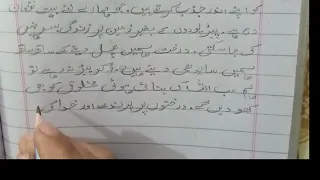 کو اپنے اندر جذب کرتے ہیں۔ جو ہمارے لئے بہت
دہ ہے۔ پیڑ پودوں کے بغیر زمین پر زندگی نہیں
کی جا سکتی۔ درخت ہمیں پھل دینے کے ساتھ ساتھ
ہمیں سایہ بھی دیتے ہیں۔ اگر پیڑ نہ رہے تو
ہم سب اللہ کی بنائی ہوئی مخلوق کو بھی
کھو دیں گے۔ درختوں پر پرندے اور خدا کی